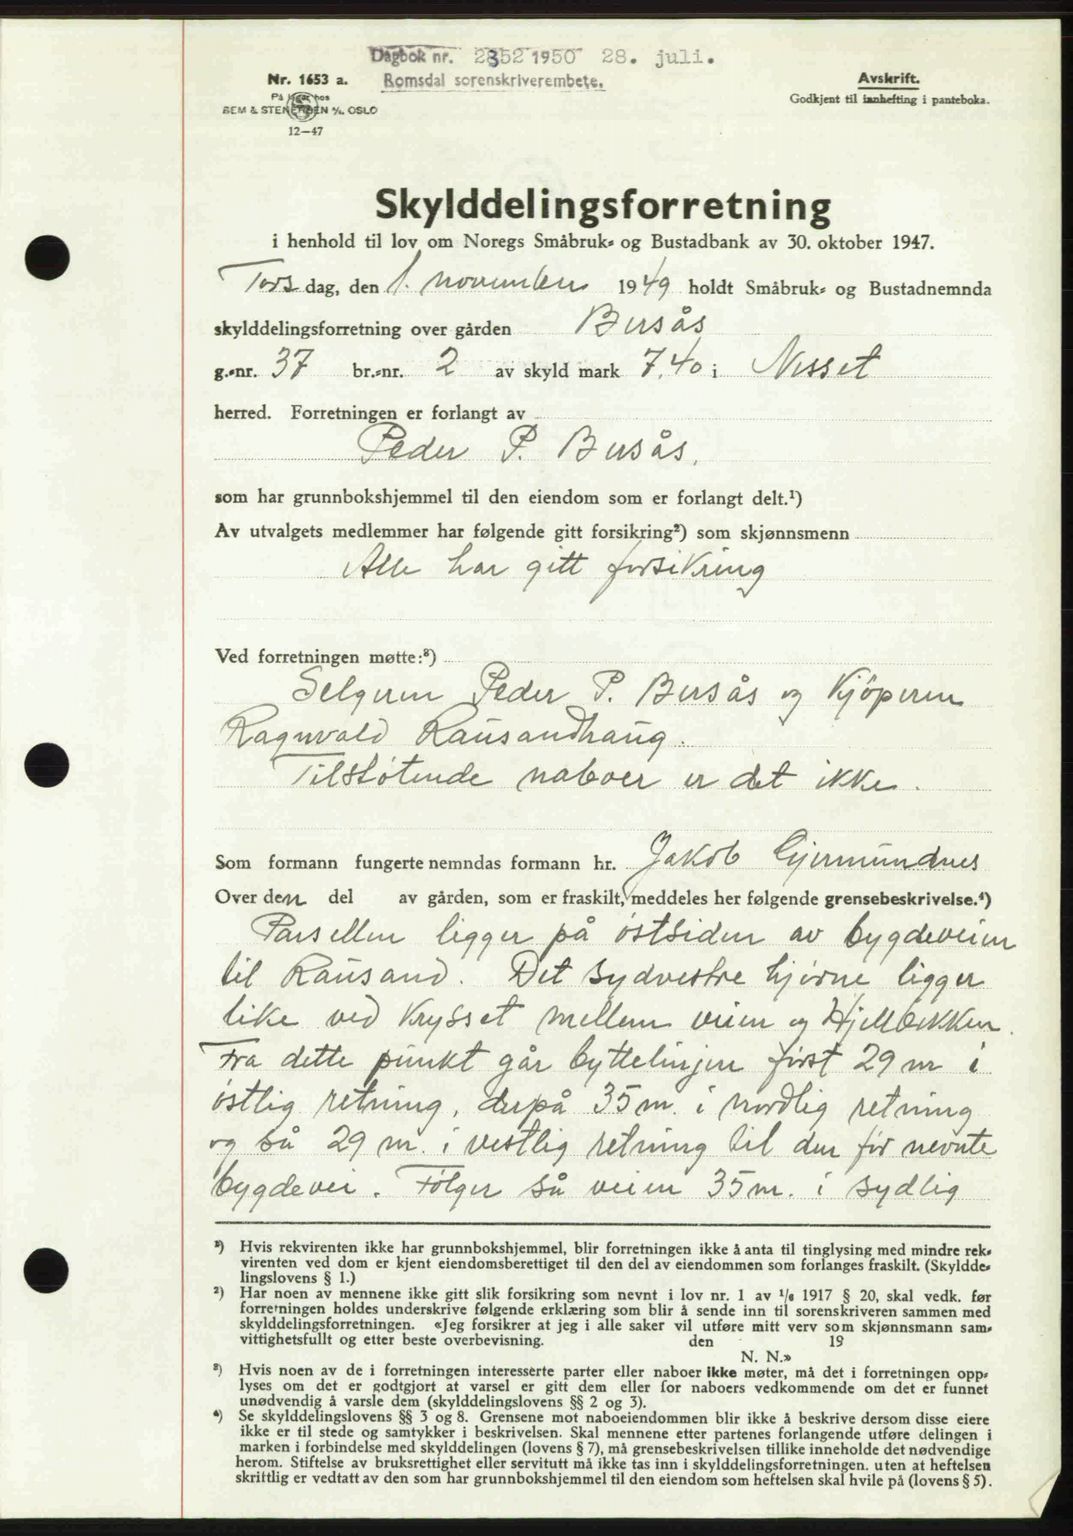 Dagbok nr. 2352 1950 28. juli.
Romsdal sorenskriverembete.
Nr. 1653 a.
På lager hos
SEM & STENERSEN A/S. OSLO
12—47
Avskrift.
Godkjent til innhefting i panteboka.
Skylddelingsforretning
i henhold til lov om Noregs Småbruk- og Bustadbank av 30. oktober 1947.
Tors dag, den 1. november 1949 holdt Småbruk- og Bustadnemnda
skylddelingsforretning over gården Bersås
g.-nr. 37 br.-nr. 2 av skyld mark 7,40 i Nesset
herred. Forretningen er forlangt av
Peder P. Bersås.
som har grunnbokshjemmel til den eiendom som er forlangt delt.¹)
Av utvalgets medlemmer har følgende gitt forsikring²) som skjønnsmenn
Alle har gitt forsikring
Ved forretningen møtte:³)
Selgeren Peder P. Bersås og kjöperen
Ragnvald Rausandhaug.
Tilstøtende naboer er det ikke.
Som formann fungerte nemndas formann hr. Jakob Gjermundnes
Over den del av gården, som er fraskilt, meddeles her følgende grensebeskrivelse.⁴)
Parsellen ligger på østsiden av bygdeveien
til Rausand. Det sydvestre hjørne ligger
like ved krysset mellem veien og Hjellbekken.
Fra dette punkt går byttelinjen først 29 m i
østlig retning, derpå 35 m. i nordlig retning
og så 29 m. i vestlig retning til den før nevnte
bygdevei. Følger så veien 35 m. i sydlig
¹) Hvis rekvirenten ikke har grunnbokshjemmel, blir forretningen ikke å anta til tinglysing med mindre rek-
virenten ved dom er kjent eiendomsberettiget til den del av eiendommen som forlanges fraskilt. (Skyldde-
lingslovens § 1.)
²) Har noen av mennene ikke gitt slik forsikring som nevnt i lov nr. 1 av 1/6 1917 § 20, skal vedk. før
forretningen holdes underskrive følgende erklæring som blir å sende inn til sorenskriveren sammen med
skylddelingsforretningen. «Jeg forsikrer at jeg i alle saker vil utføre mitt verv som skjønnsmann sam-
vittighetsfullt og etter beste overbevisning. den 19
N. N.»
³) Hvis noen av de i forretningen interesserte parter eller naboer ikke møter, må det i forretningen opp-
lyses om det er godtgjort at varsel er gitt dem eller for naboers vedkommende om det er funnet
unødvendig å varsle dem (skylddelingslovens §§ 2 og 3).
⁴) Se skylddelingslovens §§ 3 og 8. Grensene mot naboeiendommen blir ikke å beskrive dersom disse eiere
ikke er til stede og samtykker i beskrivelsen. Skal mennene etter partenes forlangende utføre delingen i
marken i forbindelse med skylddelingen (lovens § 7), må grensebeskrivelsen tillike inneholde det nødvendige
herom. Stiftelse av bruksrettighet eller servitutt må ikke tas inn i skylddelingsforretningen. uten at heftelsen
skriftlig er vedtatt av den som har grunnbokshjemmel til den eiendom som heftelsen skal hvile på (lovens § 5).